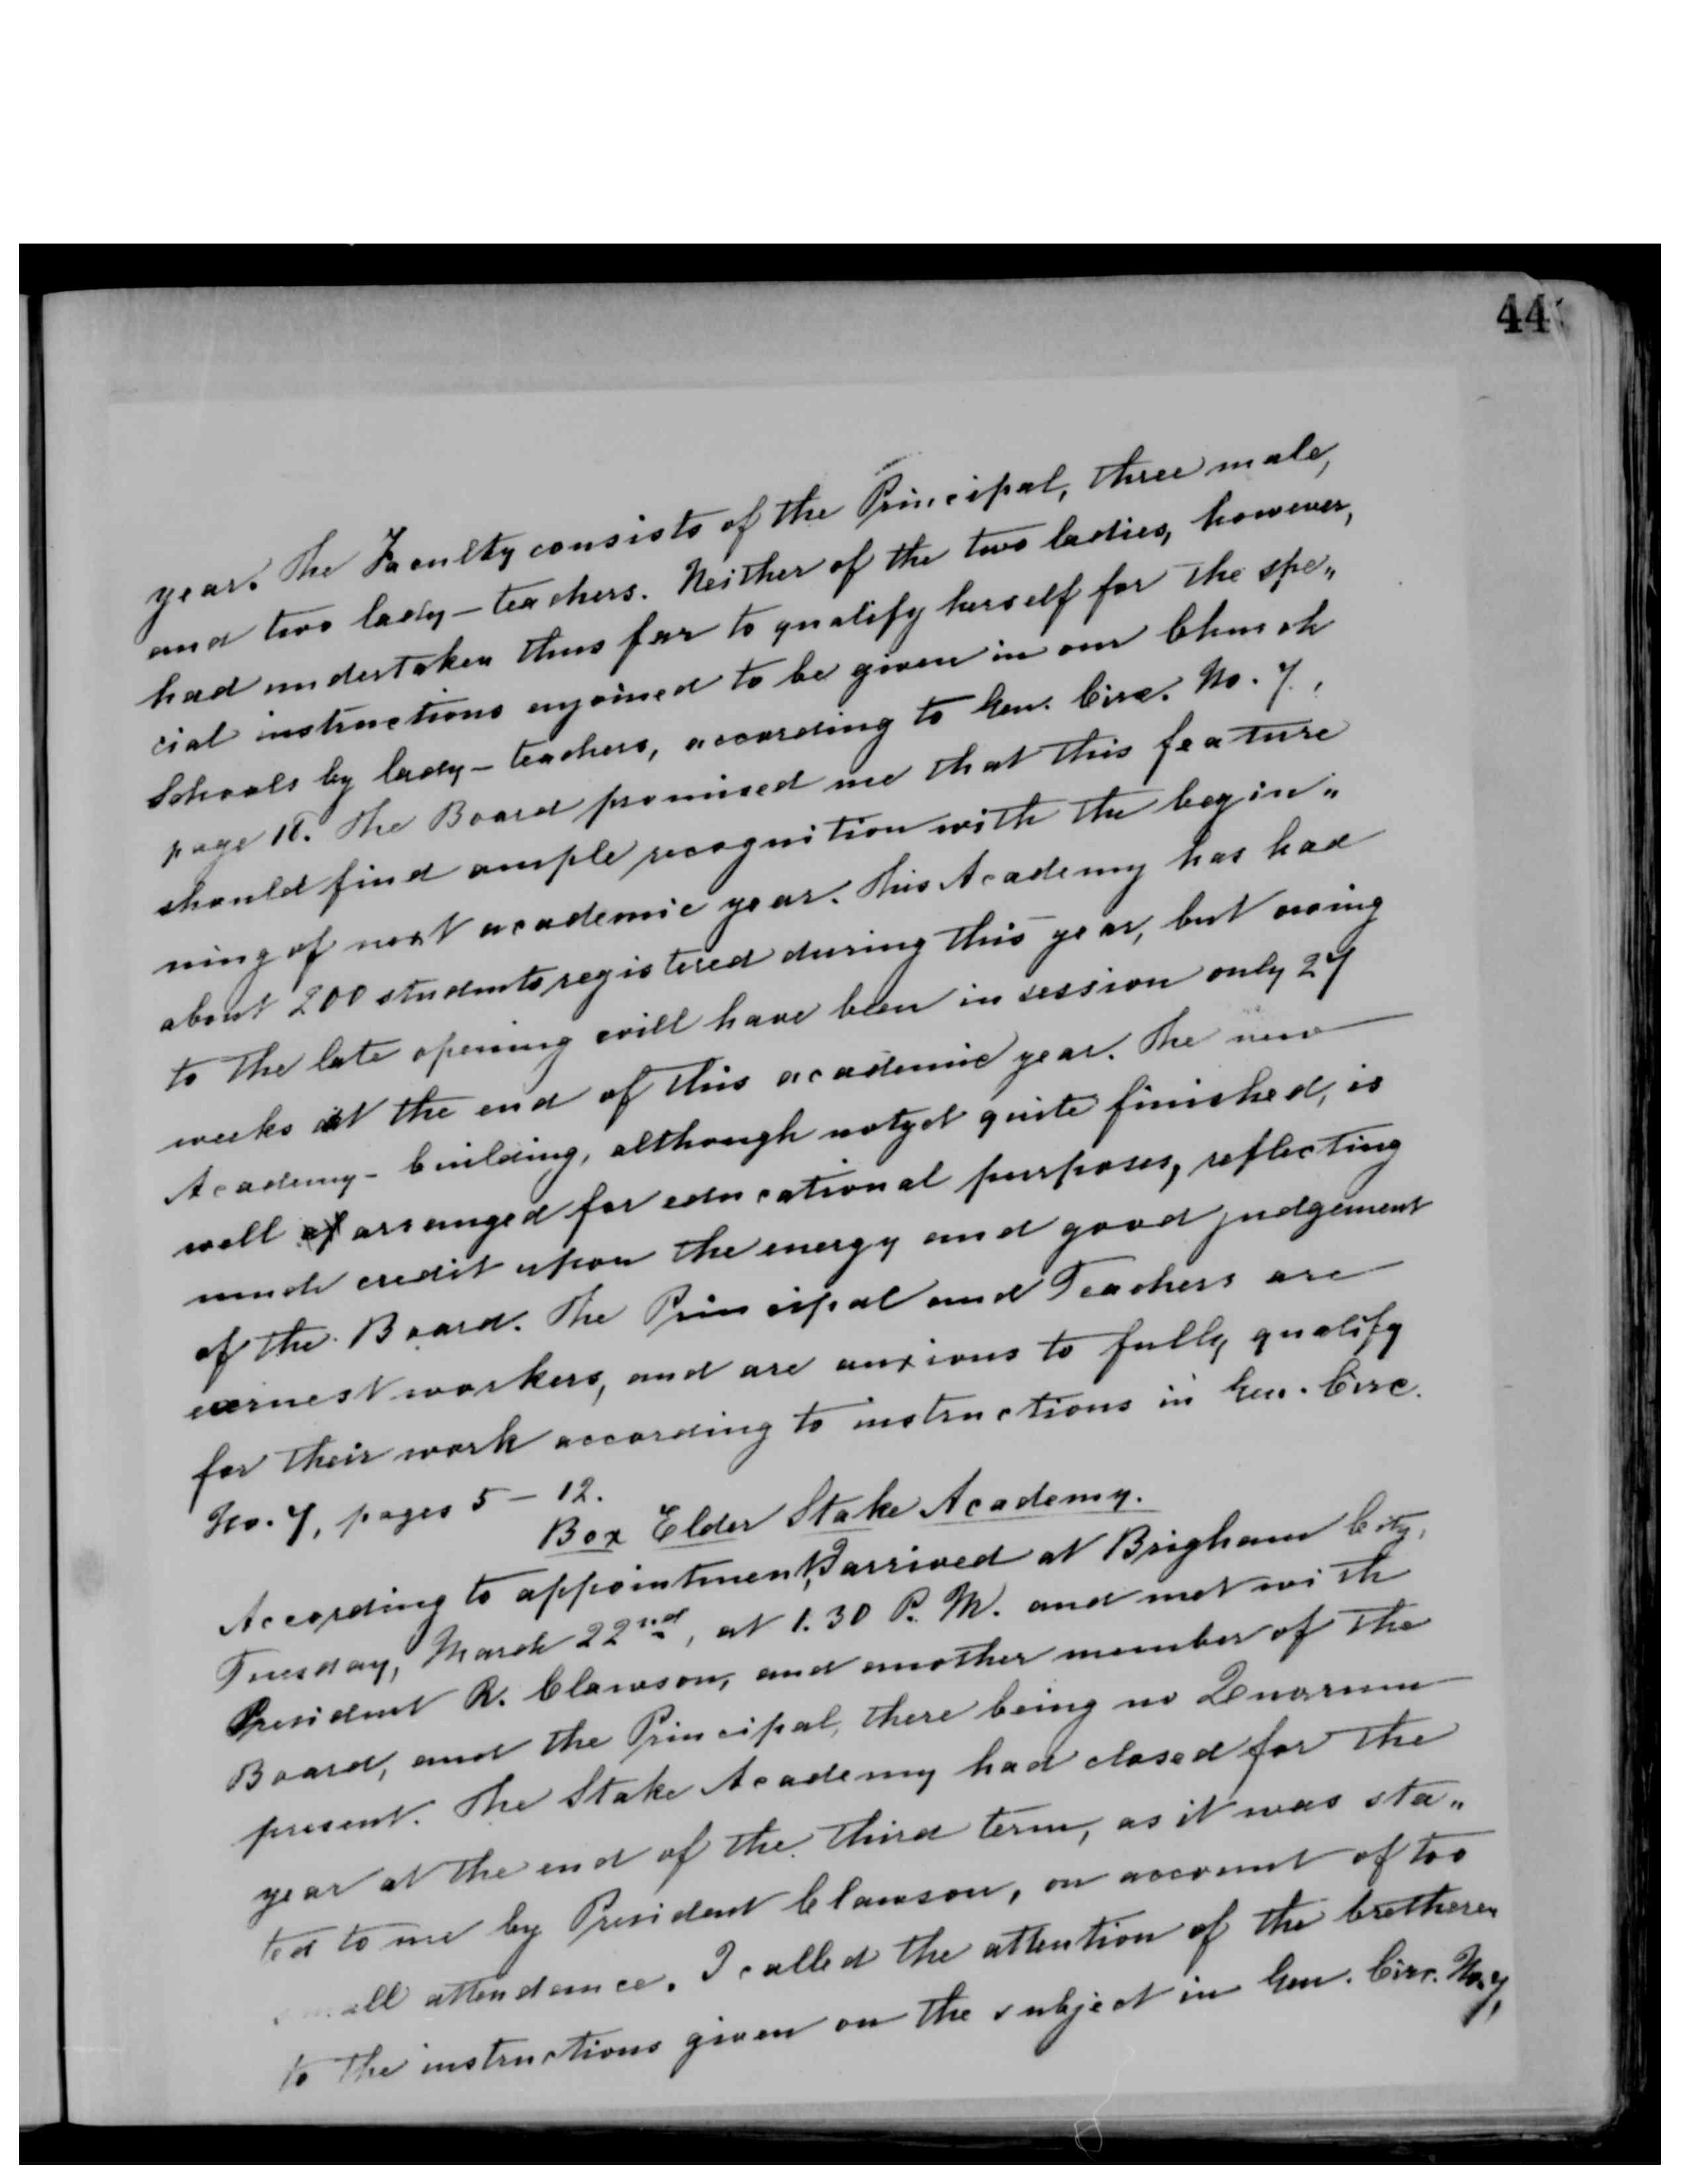 44
year. The Faculty consists of the Principal, three male,
and two lady-teachers. Neither of the two ladies, however,
had undertaken thus far to qualify herself for the spe„
cial instructions enjoined to be given in our Church
Schools by lady-teachers, according to Gen. Circ. No. 7.,
page 11. The Board promised me that this feature
should find ample recognition with the begin„
ning of next academic year. This Academy has had
about 200 students registered during this year, but owing
to the late opening will have been in session only 27
weeks at the end of this academic year. The new
Academy-building, although not yet quite finished, is
well arranged for educational purposes, reflecting
much credit upon the energy and good judgement
of the Board. The Principal and Teachers are
earnest workers, and are anxious to fully qualify
for their work according to instructions in Gen. Circ.
No. 7, pages 5-12.
Box Elder Stake Academy.
According to appointment, I arrived at Brigham City,
Tuesday, March 22nd, at 1.30 P. M. and met with
President R. Clawson, and another member of the
Board, and the Principal, there being no Quorum
present. The Stake Academy had closed for the
year at the end of the third term, as it was sta„
ted to me by President Clawson, on account of too
small attendance. I called the attention of the bretheren
to the instructions given on the subject in Gen. Circ. No. 7,